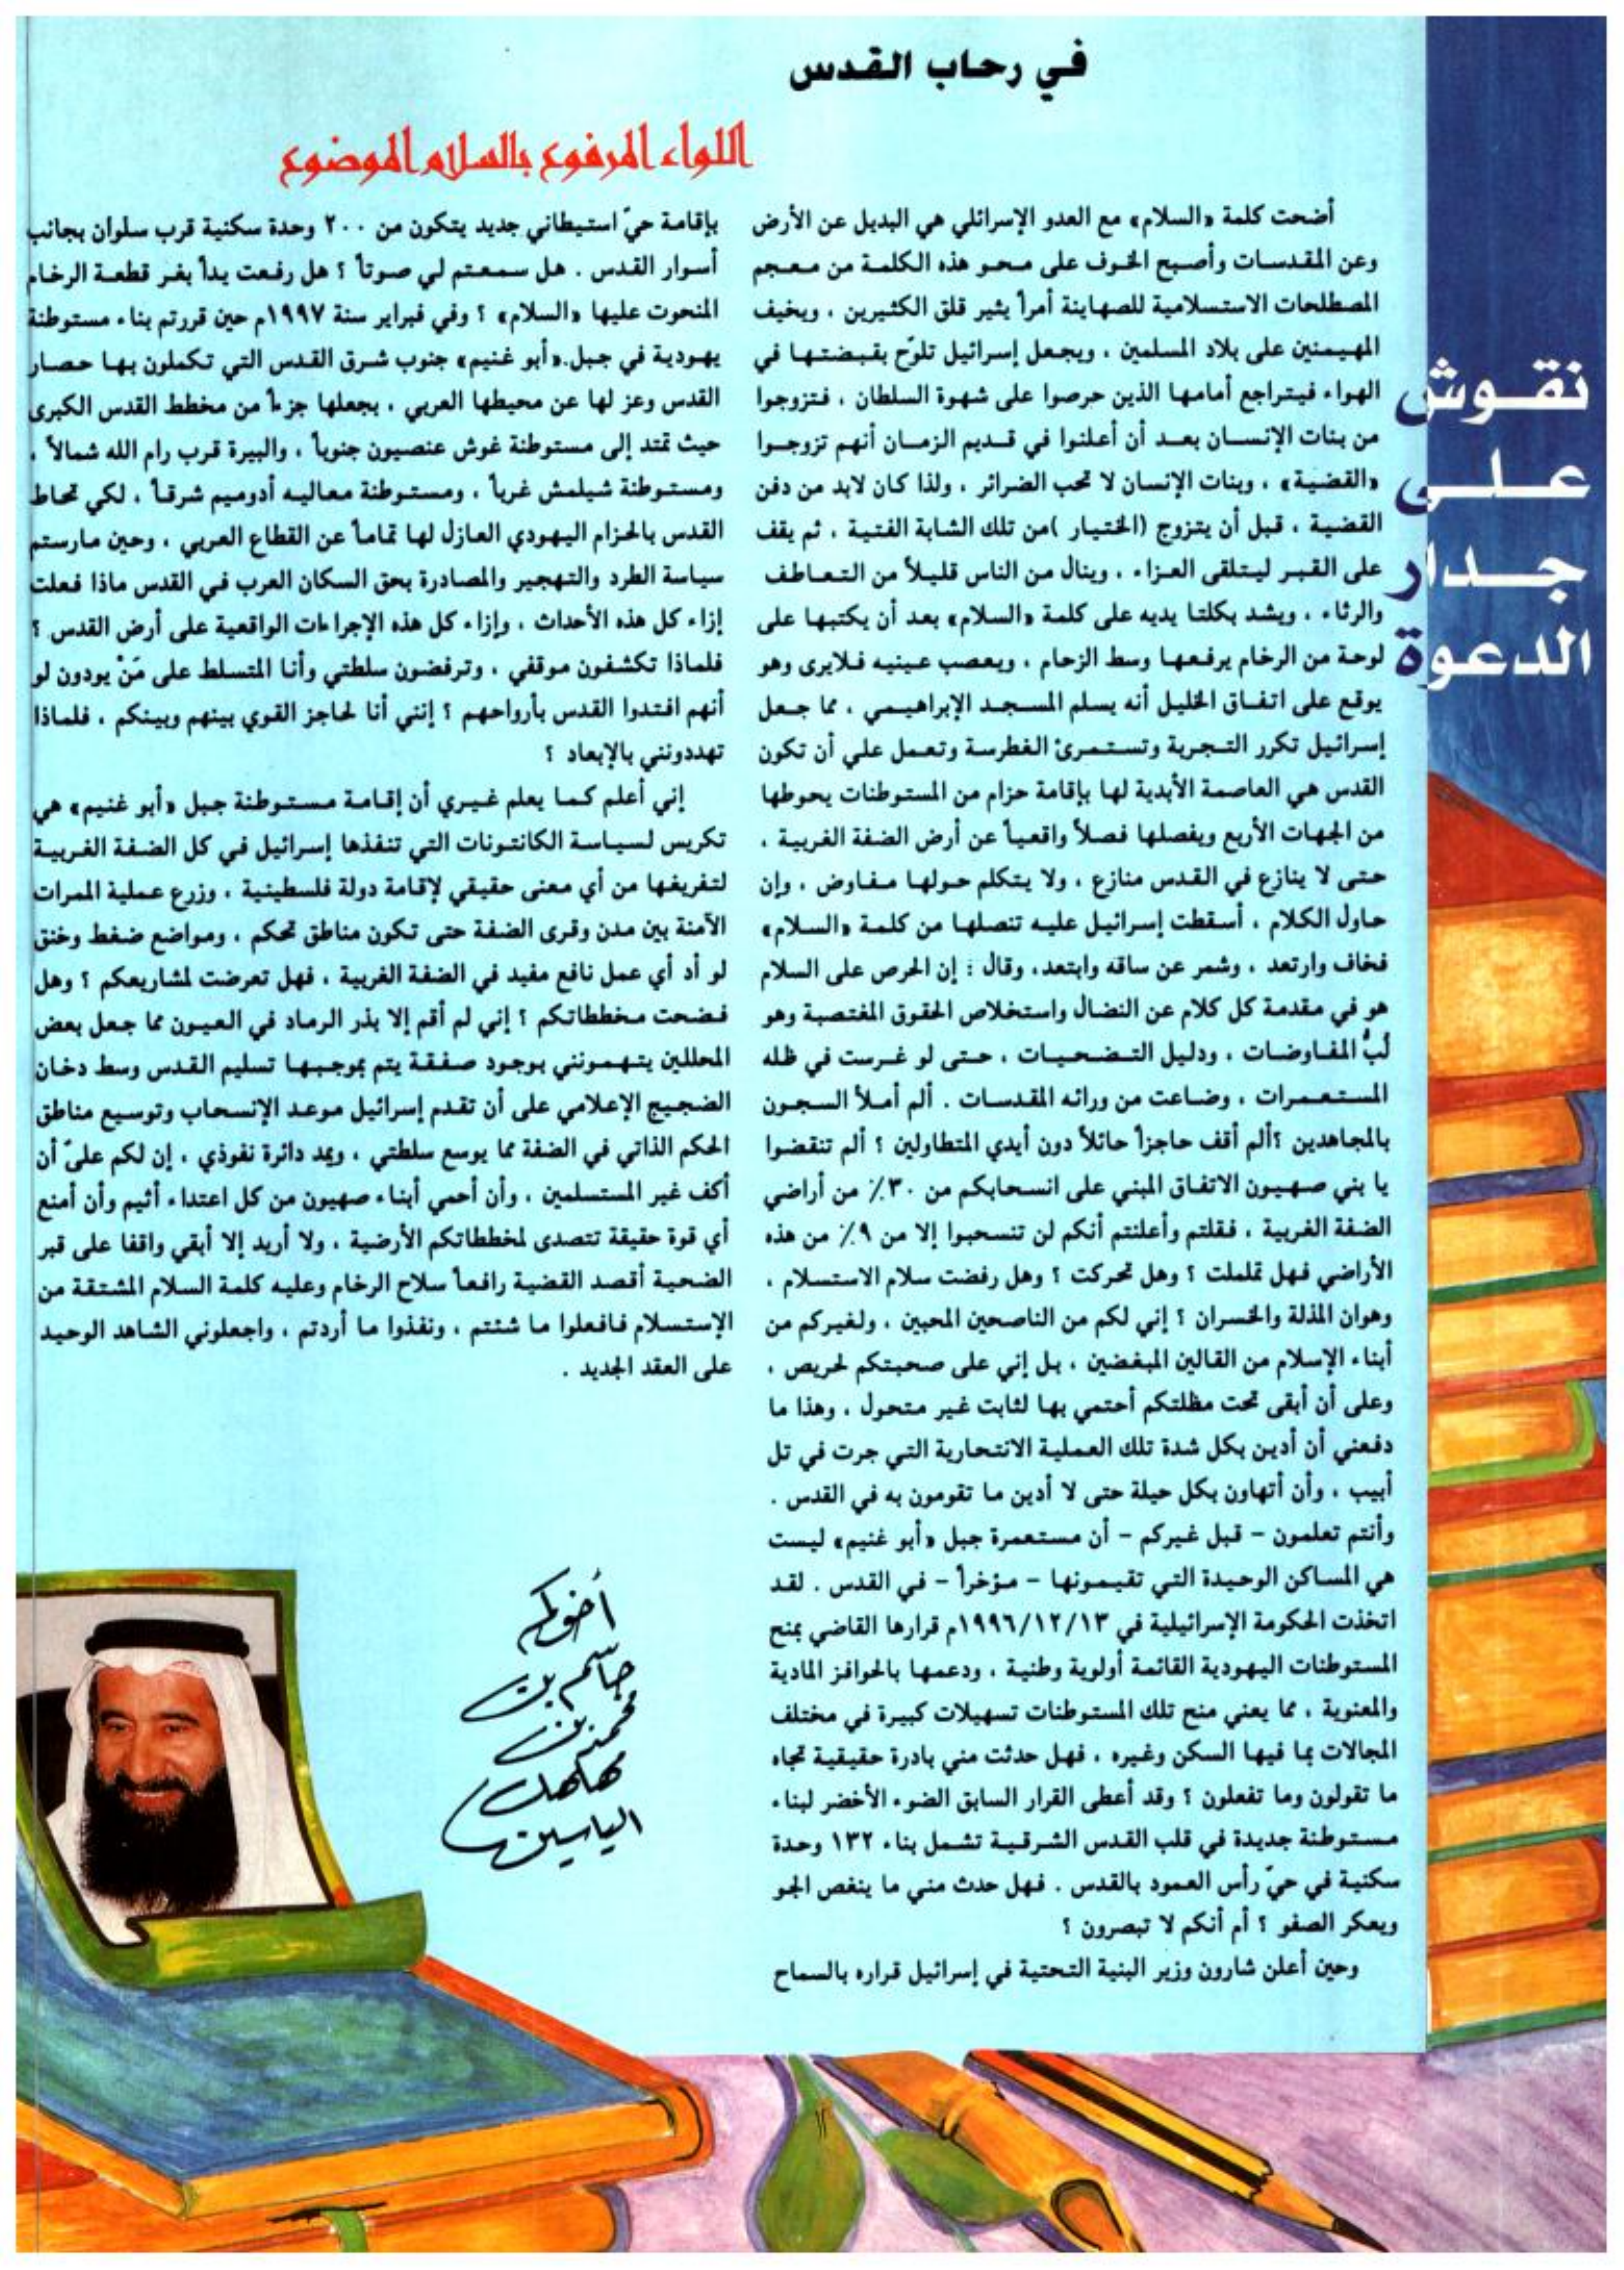 في رحاب القدس
اللواء المرفوع بالسلام الموضوع
نقوش
على
جدار
الدعوة
أضحت كلمة «السلام» مع العدو الإسرائلي هي البديل عن الأرض
وعن المقدسات وأصبح الخوف على محو هذه الكلمة من معجم
المصطلحات الاستسلامية للصهاينة أمراً يثير قلق الكثيرين ، ويخيف
المهيمنين على بلاد المسلمين ، ويجعل إسرائيل تلوّح بقبضتها في
الهواء فيتراجع أمامها الذين حرصوا على شهوة السلطان ، فتزوجوا
من بنات الإنسان بعد أن أعلنوا في قديم الزمان أنهم تزوجوا
«القضية» ، وبنات الإنسان لا تحب الضرائر ، ولذا كان لابد من دفن
القضية ، قبل أن يتزوج (الختيار )من تلك الشابة الفتية ، ثم يقف
على القبر ليتلقى العزاء ، وينال من الناس قليلاً من التعاطف
والرثاء ، ويشد بكلتا يديه على كلمة «السلام» بعد أن يكتبها على
لوحة من الرخام يرفعها وسط الزحام ، ويعصب عينيه فلايرى وهو
يوقع على اتفاق الخليل أنه يسلم المسجد الإبراهيمي ، مما جعل
إسرائيل تكرر التجربة وتستمرئ الغطرسة وتعمل علي أن تكون
القدس هي العاصمة الأبدية لها بإقامة حزام من المستوطنات يحوطها
من الجهات الأربع ويفصلها فصلاً واقعياً عن أرض الضفة الغربية ،
حتى لا ينازع في القدس منازع ، ولا يتكلم حولها مفاوض ، وإن
حاول الكلام ، أسقطت إسرائيل عليه تنصلها من كلمة «السلام»
فخاف وارتعد ، وشمر عن ساقه وابتعد، وقال : إن الحرص على السلام
هو في مقدمة كل كلام عن النضال واستخلاص الحقوق المغتصبة وهو
لبُّ المفاوضات ، ودليل التضحيات ، حتى لو غرست في ظله
المستعمرات ، وضاعت من ورائه المقدسات . ألم أملأ السجون
بالمجاهدين ؟ألم أقف حاجزاً حائلاً دون أيدي المتطاولين ؟ ألم تنقضوا
يا بني صهيون الاتفاق المبني على انسحابكم من ٣٠٪ من أراضي
الضفة الغربية ، فقلتم وأعلنتم أنكم لن تنسحبوا إلا من ٩٪ من هذه
الأراضي فهل تململت ؟ وهل تحركت ؟ وهل رفضت سلام الاستسلام ،
وهوان المذلة والخسران ؟ إني لكم من الناصحين المحبين ، ولغيركم من
أبناء الإسلام من القالين المبغضين ، بل إني على صحبتكم لحريص ،
وعلى أن أبقى تحت مظلتكم أحتمي بها لثابت غير متحول ، وهذا ما
دفعني أن أدين بكل شدة تلك العملية الانتحارية التي جرت في تل
أبيب ، وأن أتهاون بكل حيلة حتى لا أدين ما تقومون به في القدس .
وأنتم تعلمون – قبل غيركم – أن مستعمرة جبل «أبو غنيم» ليست
هي المساكن الوحيدة التي تقيمونها – مؤخراً – في القدس . لقد
اتخذت الحكومة الإسرائيلية في ١٩٩٦/١٢/١٣م قرارها القاضي بمنح
المستوطنات اليهودية القائمة أولوية وطنية ، ودعمها بالحوافز المادية
والمعنوية ، مما يعني منح تلك المستوطنات تسهيلات كبيرة في مختلف
المجالات بما فيها السكن وغيره ، فهل حدثت مني بادرة حقيقية تجاه
ما تقولون وما تفعلون ؟ وقد أعطى القرار السابق الضوء الأخضر لبناء
مستوطنة جديدة في قلب القدس الشرقية تشمل بناء ١٣٢ وحدة
سكنية في حيّ رأس العمود بالقدس . فهل حدث مني ما ينغص الجو
ويعكر الصفو ؟ أم أنكم لا تبصرون ؟
وحين أعلن شارون وزير البنية التحتية في إسرائيل قراره بالسماح
بإقامة حيّ استيطاني جديد يتكون من ٢٠٠ وحدة سكنية قرب سلوان بجانب
أسوار القدس . هل سمعتم لي صوتاً ؟ هل رفعت يداً بغر قطعة الرخام
المنحوت عليها «السلام» ؟ وفي فبراير سنة ١٩٩٧م حين قررتم بناء مستوطنة
يهودية في جبل.«أبو غنيم» جنوب شرق القدس التي تكملون بها حصار
القدس وعز لها عن محيطها العربي ، بجعلها جزءاً من مخطط القدس الكبرى
حيث تمتد إلى مستوطنة غوش عنصيون جنوباً ، والبيرة قرب رام الله شمالاً ،
ومستوطنة شيلمش غرباً ، ومستوطنة معاليه أدوميم شرقاً ، لكي تحاط
القدس بالحزام اليهودي العازل لها تماماً عن القطاع العربي ، وحين مارستم
سياسة الطرد والتهجير والمصادرة بحق السكان العرب في القدس ماذا فعلت
إزاء كل هذه الأحداث ، وإزاء كل هذه الإجراءات الواقعية على أرض القدس ؟
فلماذا تكشفون موقفي ، وترفضون سلطتي وأنا المتسلط على مَنْ يودون لو
أنهم افتدوا القدس بأرواحهم ؟ إنني أنا لحاجز القوي بينهم وبينكم ، فلماذا
تهددونني بالإبعاد ؟
إني أعلم كما يعلم غيري أن إقامة مستوطنة جبل «أبو غنيم» هي
تكريس لسياسة الكانتونات التي تنفذها إسرائيل في كل الضفة الغربية
لتفريغها من أي معنى حقيقي لإقامة دولة فلسطينية ، وزرع عملية الممرات
الآمنة بين مدن وقرى الضفة حتى تكون مناطق تحكم ، ومواضع ضغط وخنق
لو أد أي عمل نافع مفيد في الضفة الغربية ، فهل تعرضت لمشاريعكم ؟ وهل
فضحت مخططاتكم ؟ إني لم أقم إلا بذر الرماد في العيون مما جعل بعض
المحللين يتهمونني بوجود صفقة يتم بموجبها تسليم القدس وسط دخان
الضجيج الإعلامي على أن تقدم إسرائيل موعد الإنسحاب وتوسيع مناطق
الحكم الذاتي في الضفة مما يوسع سلطتي ، ويمد دائرة نفوذي ، إن لكم علىّ أن
أكف غير المستسلمين ، وأن أحمي أبناء صهيون من كل اعتداء أثيم وأن أمنع
أي قوة حقيقة تتصدى لمخططاتكم الأرضية ، ولا أريد إلا أبقي واقفا على قبر
الضحية أقصد القضية رافعاً سلاح الرخام وعليه كلمة السلام المشتقة من
الإستسلام فافعلوا ما شئتم ، ونفذوا ما أردتم ، واجعلوني الشاهد الوحيد
على العقد الجديد .
أخوكم
جاسم بن
محمد بن
مهلهل
الياسين